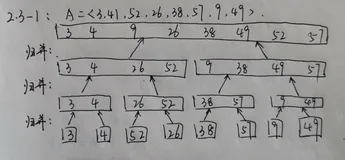 2.3-1: A=<3,41,52,26,38,57,9,49>.
3 4 9 26 38 49 52 57
归并:
3 4 26 52 9 38 49 57
归并:
3 4 26 52 38 57 9 49
归并:
3 4 52 26 38 5 9 49